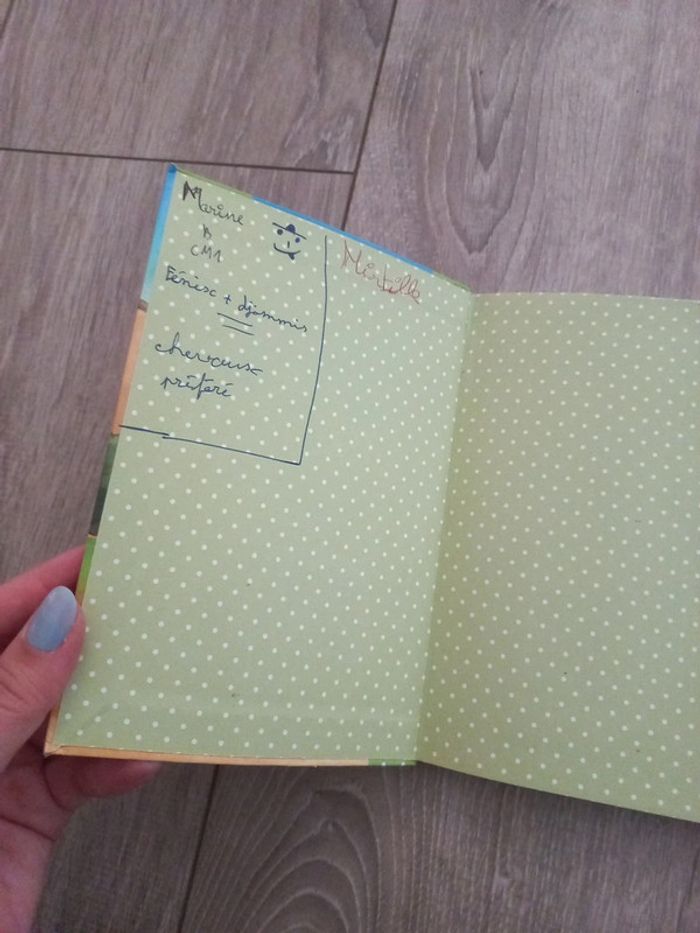 Marine
B
CM1
Fénisc + djammis
chevaux
préféré
Mirtille